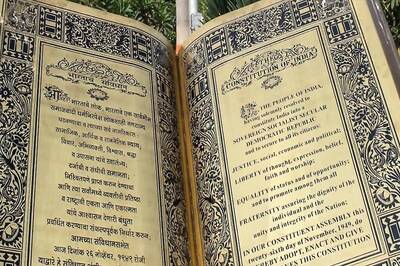 भारताचे संविधान
आम्ही भारताचे लोक, भारताचे एक सार्वभौम
समाजवादी धर्मनिरपेक्ष लोकशाही गणराज्य
घडवण्याचा व त्याच्या सर्व नागरिकांस:
सामाजिक, आर्थिक व राजनैतिक न्याय;
विचार, अभिव्यक्ती, विश्वास, श्रद्धा
व उपासना यांचे स्वातंत्र्य;
दर्जाची व संधीची समानता;
निश्चितपणे प्राप्त करून देण्याचा
आणि त्या सर्वांमध्ये व्यक्तीची प्रतिष्ठा
व राष्ट्राची एकता आणि एकात्मता
यांचे आश्वासन देणारी बंधुता
प्रवर्धित करण्याचा संकल्पपूर्वक निर्धार करून;
आमच्या संविधानसभेत
आज दिनांक २६ नोव्हेंबर, १९४९ रोजी
याद्वारे हे संविधान
CONSTITUTION OF INDIA
WE, THE PEOPLE OF INDIA,
having solemnly resolved to
constitute India into a
SOVEREIGN SOCIALIST SECULAR
DEMOCRATIC REPUBLIC
and to secure to all its citizens:
JUSTICE, social, economic and political;
LIBERTY of thought, expression, belief,
faith and worship;
EQUALITY of status and of opportunity;
and to promote among them all
FRATERNITY assuring the dignity of the
individual and the
unity and integrity of the Nation;
IN OUR CONSTITUENT ASSEMBLY this
twenty-sixth day of November, 1949, do
HEREBY ADOPT, ENACT AND GIVE
THIS CONSTITUTION